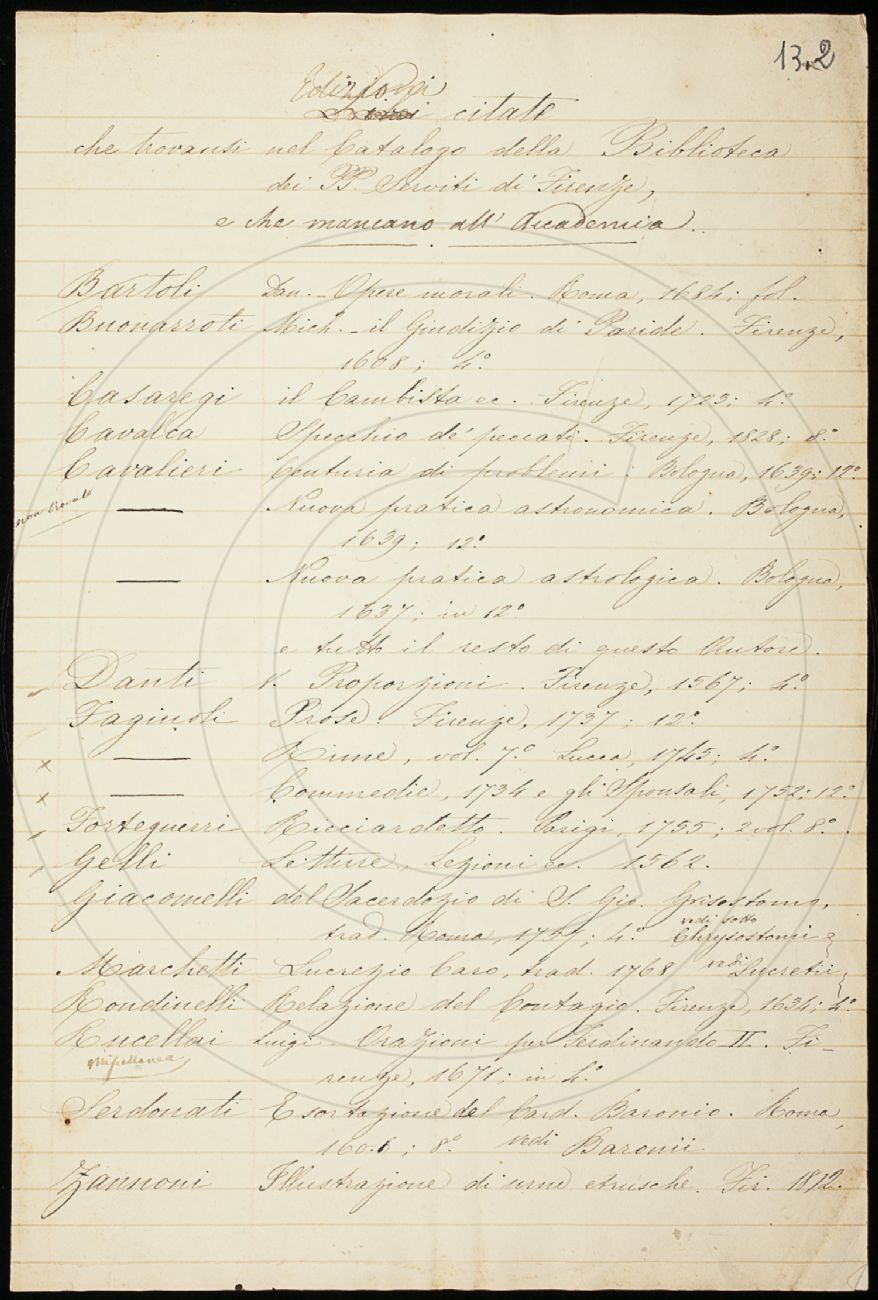 13.2
Edizioni
Libri citate
che trovansi nel Catalogo della Biblioteca
dei PP. Serviti di Firenze,
e che mancano all' Accademia.
Bartoli Dan. - Opere morali. Roma, 1684; fol.
Buonarroti Mich. - il Giudizio di Paride. Firenze,
1608; 4.°
Casaregi il Cambista ec. Firenze, 1723; 4.°
Cavalca Specchio de' peccati. Firenze, 1828; 8.°
Cavalieri Centuria di problemi. Bologna, 1639; 12.°
non trovato — Nuova pratica astronomica. Bologna,
1639; 12.°
— Nuova pratica astrologica. Bologna,
1637; in 12.°
e tutto il resto di questo Autore.
Danti V. Proporzioni. Firenze, 1567; 4.°
Fagiuoli Prose. Firenze, 1737; 12.°
x — Rime, vol. 7.° Lucca, 1745; 4.°
x — Commedie, 1734 e gli Sponsali, 1752; 12.°
Forteguerri Ricciardetto. Parigi, 1755; 2 vol. 8.°
Gelli Letture, Lezioni ec. 1562.
Giacomelli del Sacerdozio di S. Gio. Grisostomo,
vedi sotto
trad. Roma, 1757; 4.° Chrysostomi
Marchetti Lucrezio Caro, trad. 1768 vedi Lucretii
Rondinelli Relazione del Contagio. Firenze, 1634; 4.°
Rucellai Luigi - Orazioni per Ferdinando II. Fi-
Miscellanea
renze, 1671; in 4.°
Serdonati Esortazione del Card. Baronio. Roma,
1606; 8.° vedi Baronii
Zannoni Illustrazione di urne etrusche. Fir. 1812.